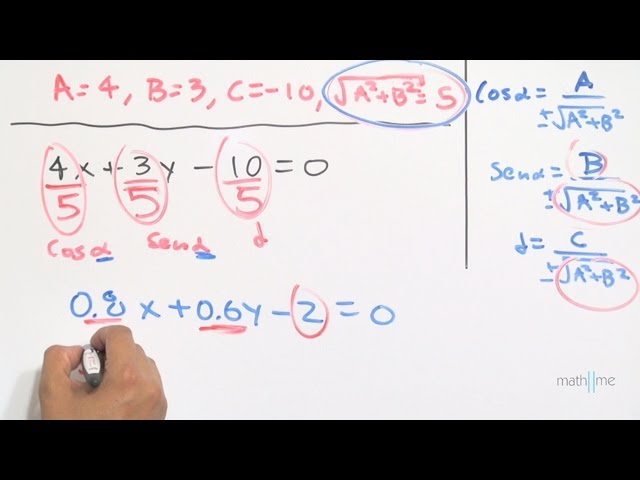 A=4, B=3, C=-10, √A²+B² = 5
4/5 x + 3/5 y - 10/5 = 0
Cosα Senα d
0.8 x + 0.6y - 2 = 0
Cosα = A/±√A²+B²
Senα = B/±√A²+B²
d = C/±√A²+B²
math||me